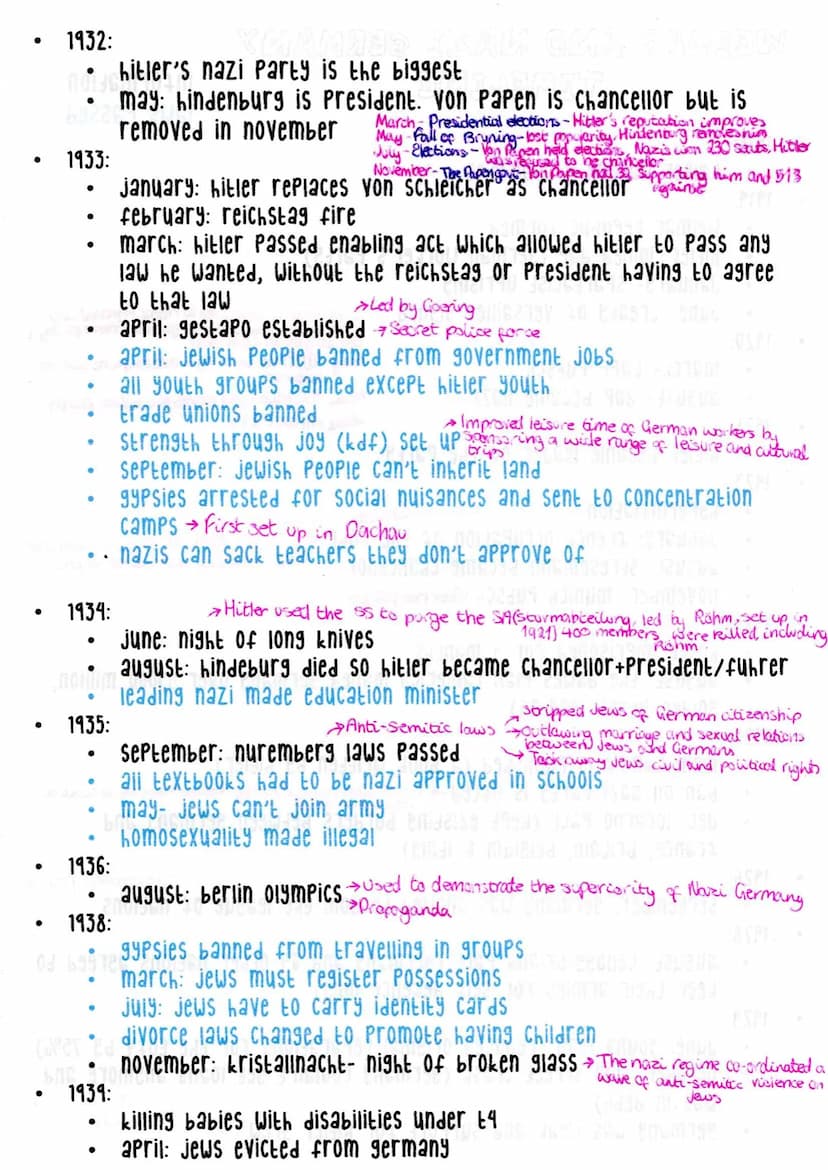 • 1932:
• hitler's nazi party is the biggest
• may: hindenburg is president. von papen is chancellor but is
removed in november
March - Presidential elections - Hitler's reputation improves
May - Fall of Bruning - lost popularity, Hindenburg removes him
July - Elections - Von Papen held elections, Nazis won 230 seats, Hitler
was refused to be chancellor
November - The Papengovt - Von Papen had 32 supporting him and 513
against
• 1933:
• january: hitler replaces von schleicher as chancellor
• february: reichstag fire
• march: hitler passed enabling act which allowed hitler to pass any
law he wanted, without the reichstag or president having to agree
to that law
→ Led by Goering
• april: gestapo established → Secret police force
• april: jewish people banned from government jobs
• all youth groups banned except hitler youth
• trade unions banned
→ Improved leisure time of German workers by
• strength through joy (kdf) set up sponsoring a wide range of leisure and cultural
trips
• september: jewish people can't inherit land
• gypsies arrested for social nuisances and sent to concentration
camps → First set up in Dachau
• nazis can sack teachers they don't approve of
• 1934:
→ Hitler used the SS to purge the SA (sturmabteilung, led by Röhm, set up in
1921) 400 members were killed, including
Röhm
• june: night of long knives
• august: hindeburg died so hitler became chancellor+president/fuhrer
• leading nazi made education minister
• 1935:
→ Anti-Semitic laws → stripped Jews of German citizenship
→ Outlawing marriage and sexual relations
between Jews and Germans
→ Took away Jews civil and political rights
• september: nuremberg laws passed
• all textbooks had to be nazi approved in schools
• may- jews can't join army
• homosexuality made illegal
• 1936:
• august: berlin olympics → used to demonstrate the superiority of Nazi Germany
→ Propoganda
• 1938:
• gypsies banned from travelling in groups
• march: jews must register possessions
• july: jews have to carry identity cards
• divorce laws changed to promote having children
• november: kristallnacht- night of broken glass → The nazi regime co-ordinated a
wave of anti-semitic violence on
Jews
• 1939:
• killing babies with disabilities under t4
• april: jews evicted from germany